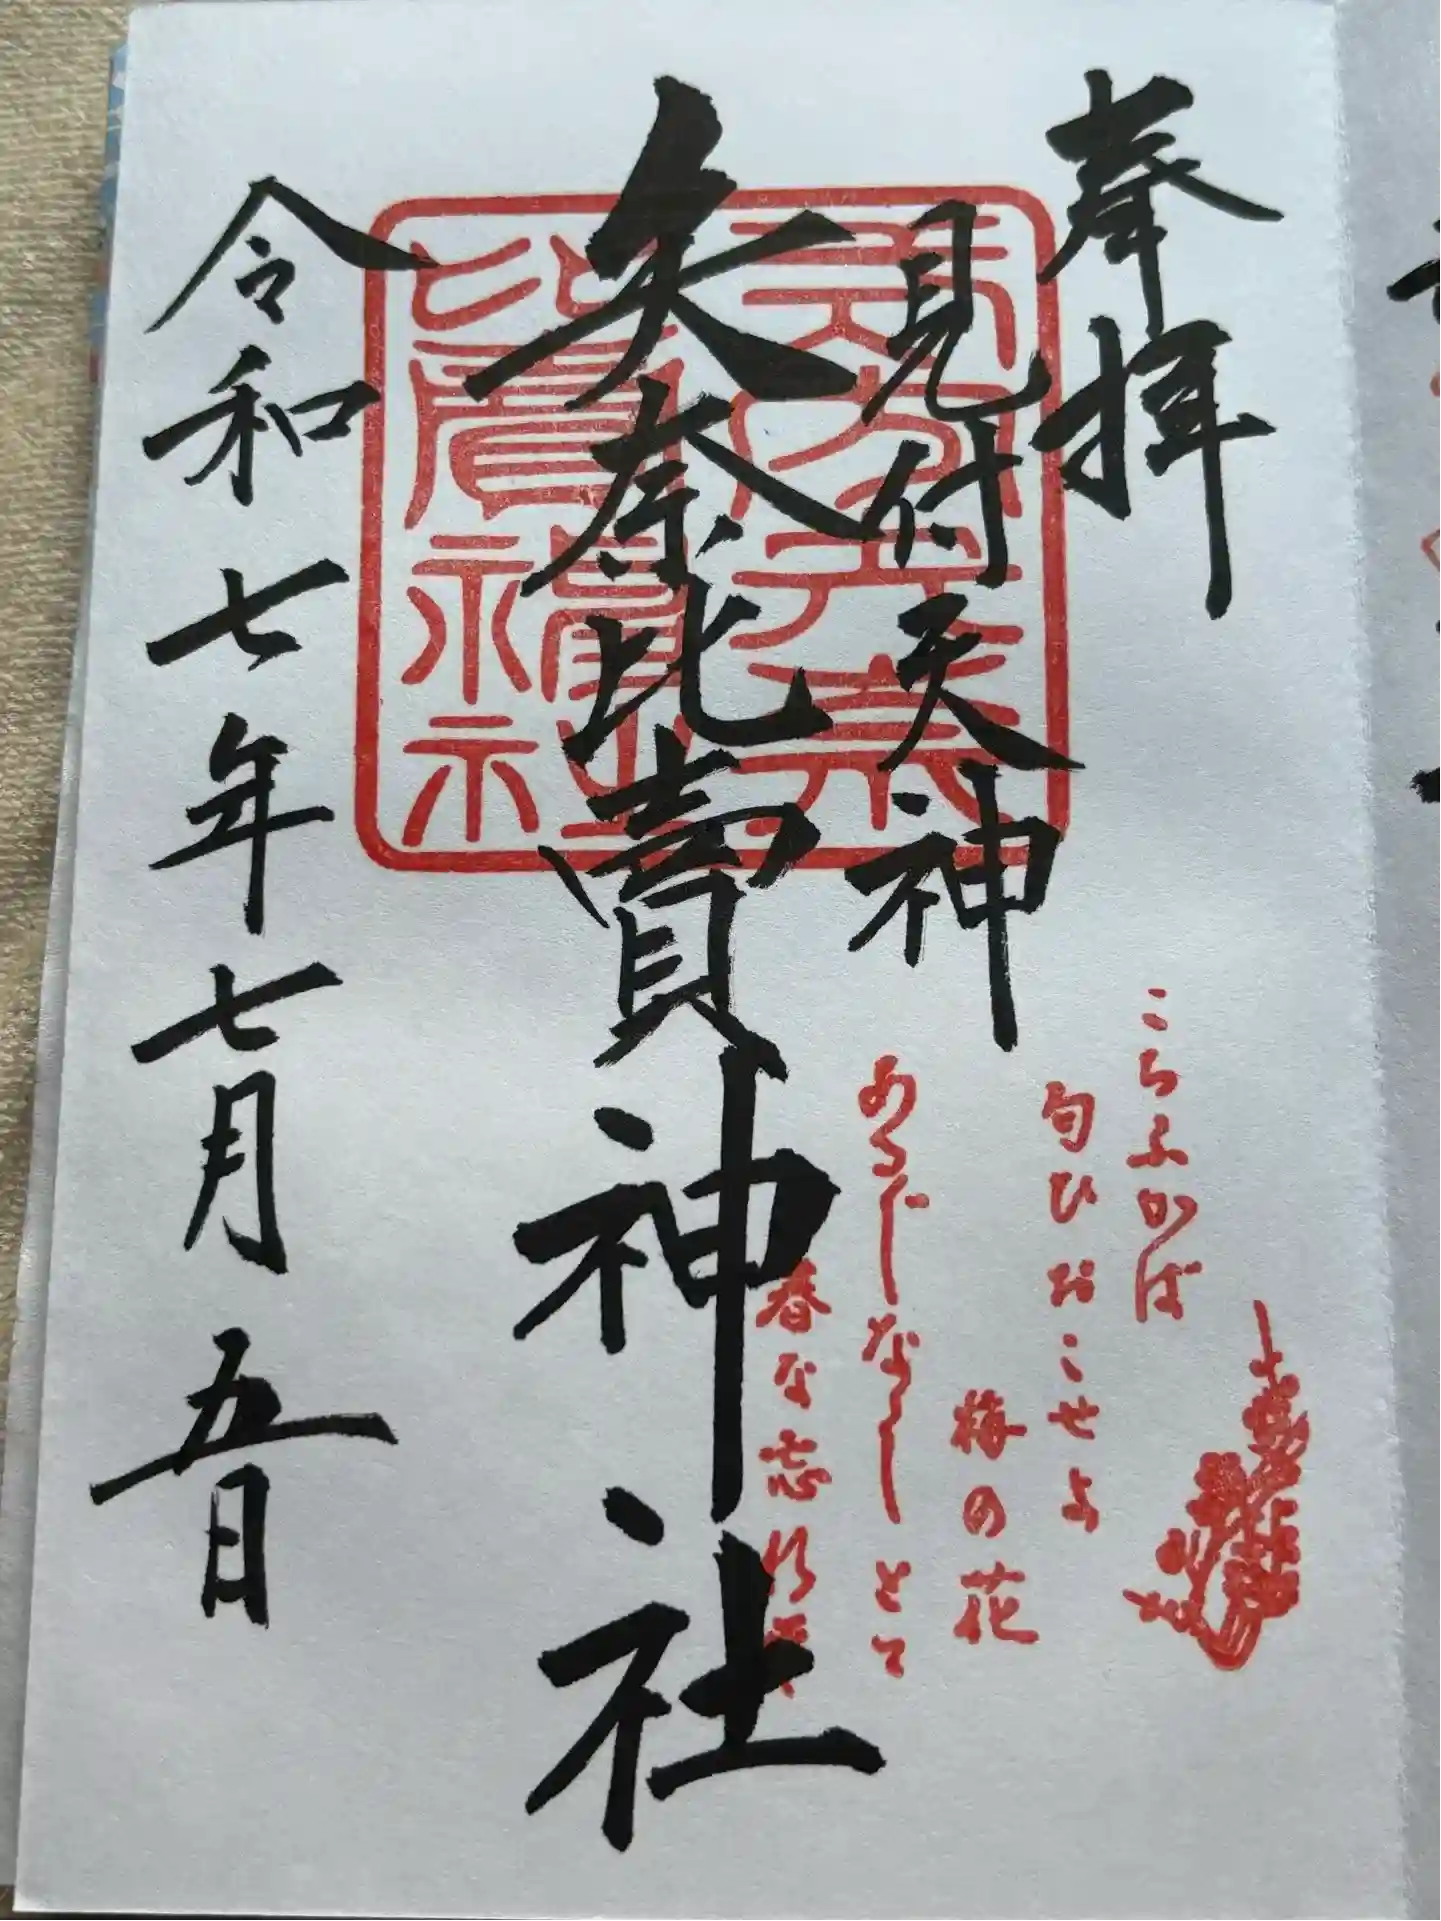 奉拝
見付天神
矢奈比賣神社
令和七年七月五日
こちふかば
匂ひおこせよ
梅の花
あるじなしとて
春な忘